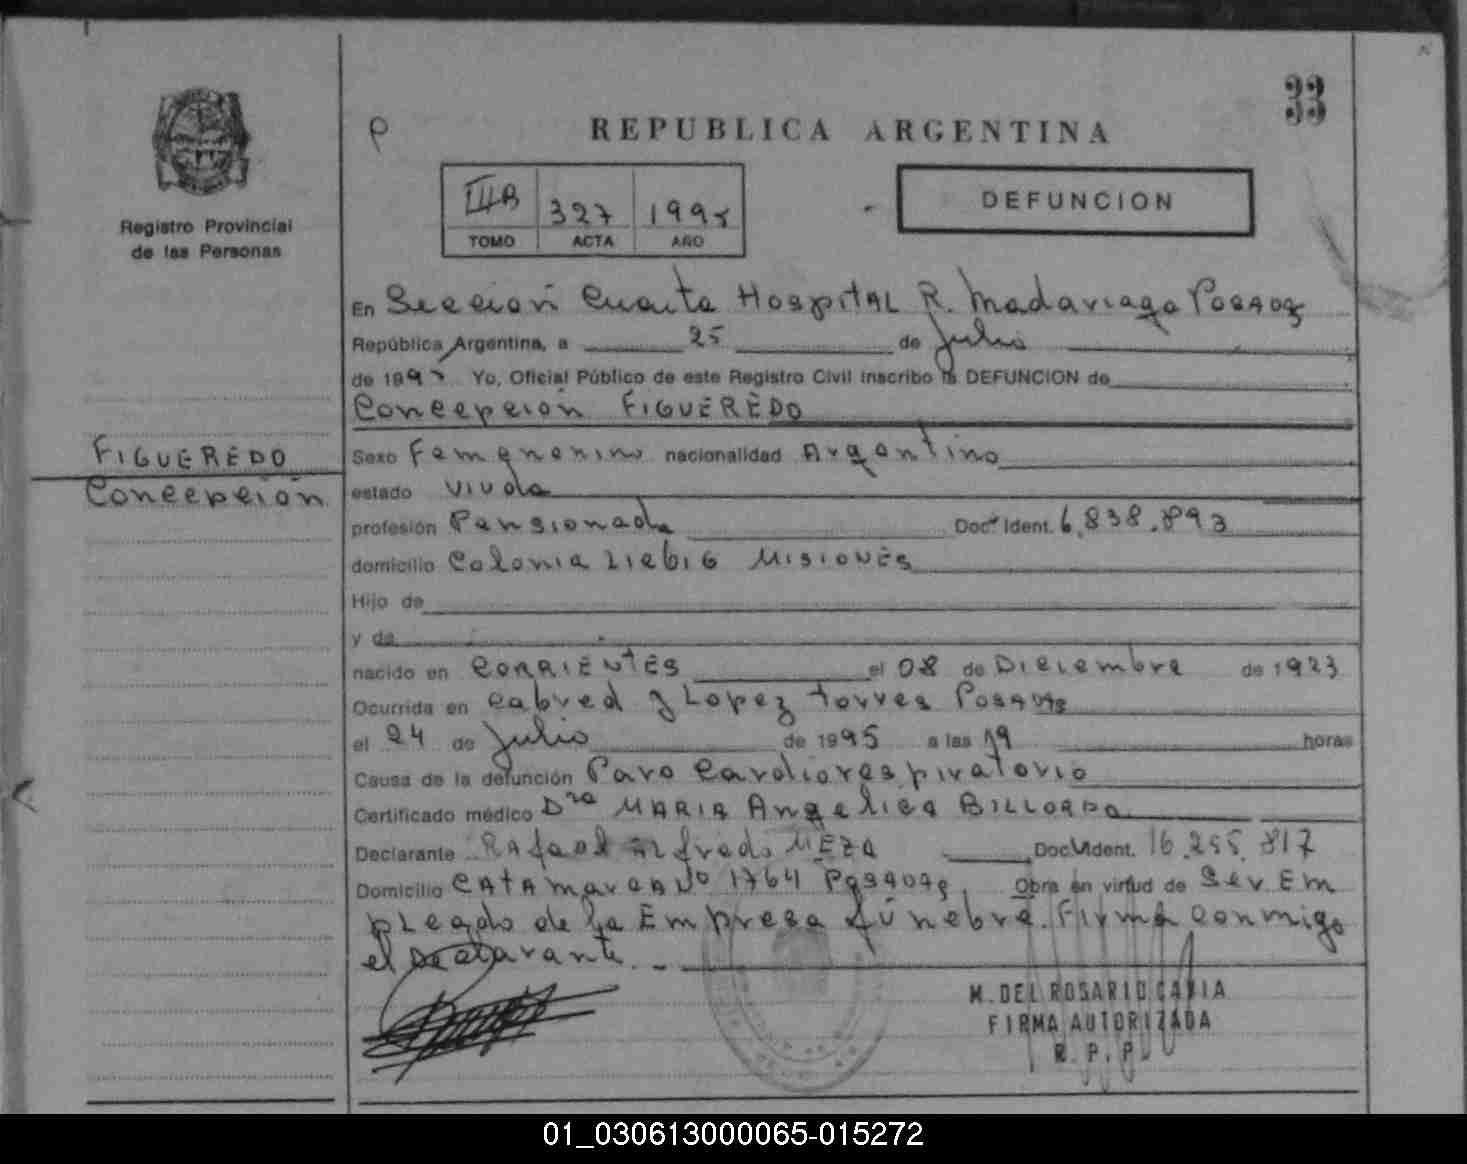 33
REPUBLICA ARGENTINA
DEFUNCION
III B 327 1995
TOMO ACTA AÑO
Registro Provincial
de las Personas
En Sección Cuarta Hospital R. Madariaga Posadas
República Argentina, a 25 de Julio
de 199 Yo, Oficial Público de este Registro Civil inscribo la DEFUNCION de
Concepción FIGUEREDO
FIGUEREDO
Concepción
Sexo nacionalidad Argentino
estado Viuda
profesión Pensionada Doc. Ident. 6.838.893
domicilio Colonia Liebig Misiones
Hijo de
y de
nacido en CORRIENTES el 08 de Diciembre de 1923
Ocurrida en Cabred y Lopez Torres Posadas
el 24 de Julio de 1995 a las 19 horas
Causa de la defunción Paro Cardiorespiratorio
Certificado médico Dra MARIA Angelica BILLORDO
Declarante Rafael Alfredo MEZA Doc. Ident. 16.255.817
Domicilio CATAmarca Nº 1764 Posadas. Obra en virtud de Ser Em
pleado de la Empresa fúnebre. Firma conmigo
el declarante.
M. DEL ROSARIO CAVIA
FIRMA AUTORIZADA
R. P. P.
01_030613000065-015272